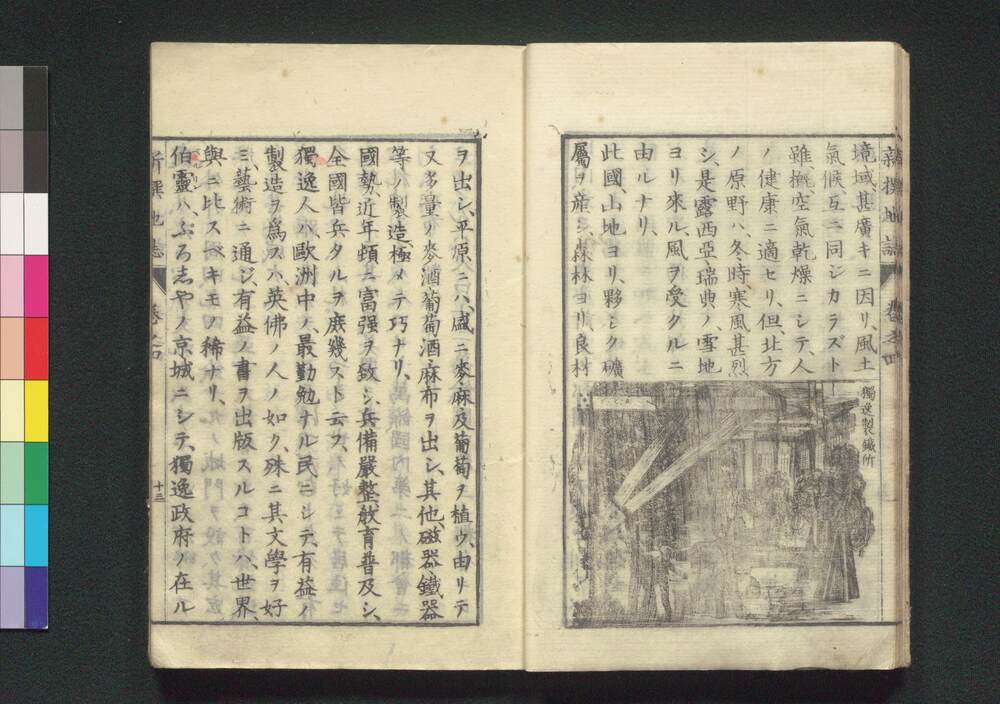 新撰地誌 卷之四
境域、甚廣キニ因リ、風土
氣候、互ニ同ジカラズト
雖㲙、空氣乾燥ニシテ、人
ノ健康ニ適セリ、但、北方
ノ原野ハ、冬時、寒風甚烈
シ、是露西亞瑞典ノ、雪地
ヨリ來ル、風ヲ受クルニ
由ルナリ、
此國、山地ヨリ、夥シク礦
屬ヲ產シ、森林ヨリ、良材
獨逸製鐵所
ヲ出シ、平原ニハ、盛ニ麥麻及葡萄ヲ植ウ、由リテ
又多量ノ麥酒葡萄酒麻布ヲ出シ、其他、磁器、鐵器
等ノ製造、極メテ巧ナリ、
國勢、近年頓ニ富强ヲ致シ、兵備嚴整、敎育普及シ、
全國皆兵タルヲ庶幾スト云フ、
獨逸人ハ、歐洲中ノ、最勤勉ナル民ニシテ、有益ノ
製造ヲ爲スハ、英佛ノ人ノ如ク、殊ニ其文學ヲ好
ミ、藝術ニ通ジ、有益ノ書ヲ出版スルコトハ、世界、
與ニ比スベキモノ稀ナリ、
伯靈ハ、ぷろしやノ京城ニシテ、獨逸政府ノ在ル
新撰地誌 卷之四 十三